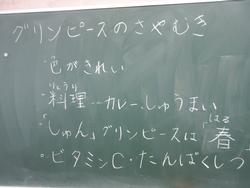 グリンピースのさやむき
・色がきれい
りょうり
・料理…カレー、しゅうまい
はる
・「しゅん」グリンピースは春
・ビタミンC・たんぱくしつ